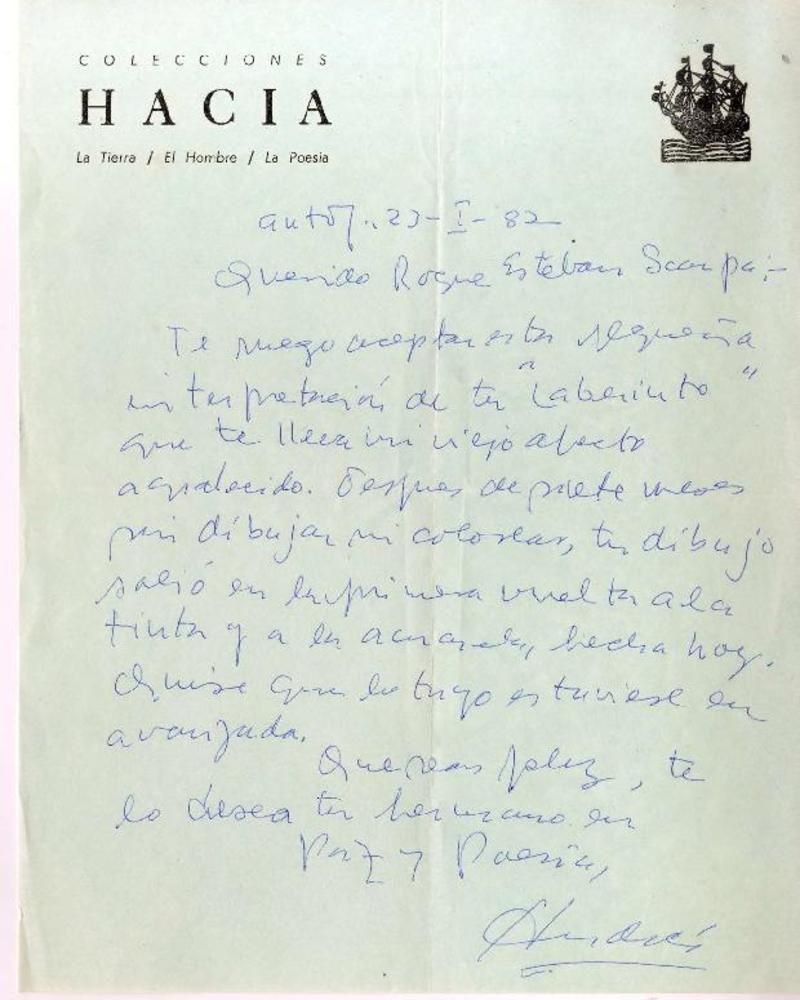 COLECCIONES
HACIA
La Tierra / El Hombre / La Poesia
antof., 23-I-82
Querido Roque Esteban Scarpa:-
Te ruego aceptar esta pequeña
interpretación de tu "Laberinto"
que te lleva mi viejo afecto
agradecido. Despues de siete meses
sin dibujar ni colorear, tu dibujo
salió en la primera vuelta a la
tinta y a la acuarela, hecha hoy.
Quise que lo tuyo estuviese en
avanzada.
Que seas feliz, te
lo desea tu hermano en
Paz y Poesía,
Andrés